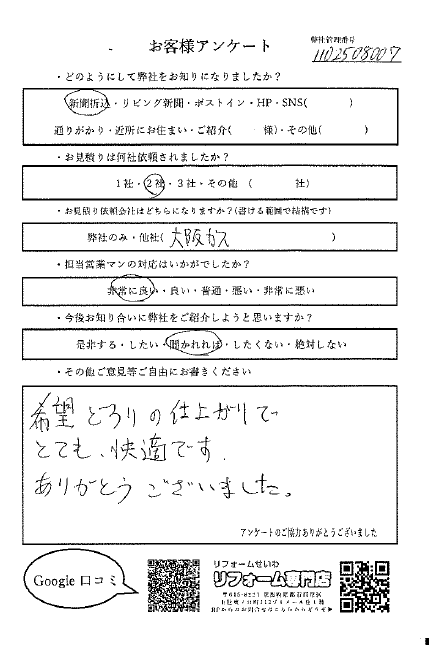 お客様アンケート
弊社管理番号
1102508007
・どのようにして弊社をお知りになりましたか?
新聞折込・リビング新聞・ポストイン・HP・SNS( )
通りがかり・近所にお住まい・ご紹介( 様)・その他( )
・お見積りは何社依頼されましたか?
1社・2社・3社・その他 ( 社)
・お見積り依頼会社はどちらになりますか?(書ける範囲で結構です)
弊社のみ・他社( 大阪ガス )
・担当営業マンの対応はいかがでしたか?
非常に良い・良い・普通・悪い・非常に悪い
・今後お知り合いに弊社をご紹介しようと思いますか?
是非する・したい・聞かれれば・したくない・絶対しない
・その他ご意見等ご自由にお書きください
希望どうりの仕上がりで
とても、快適です.
ありがとうございました。
アンケートのご協力ありがとうございました
Google 口コミ
リフォームせいわ
リフォーム専門店